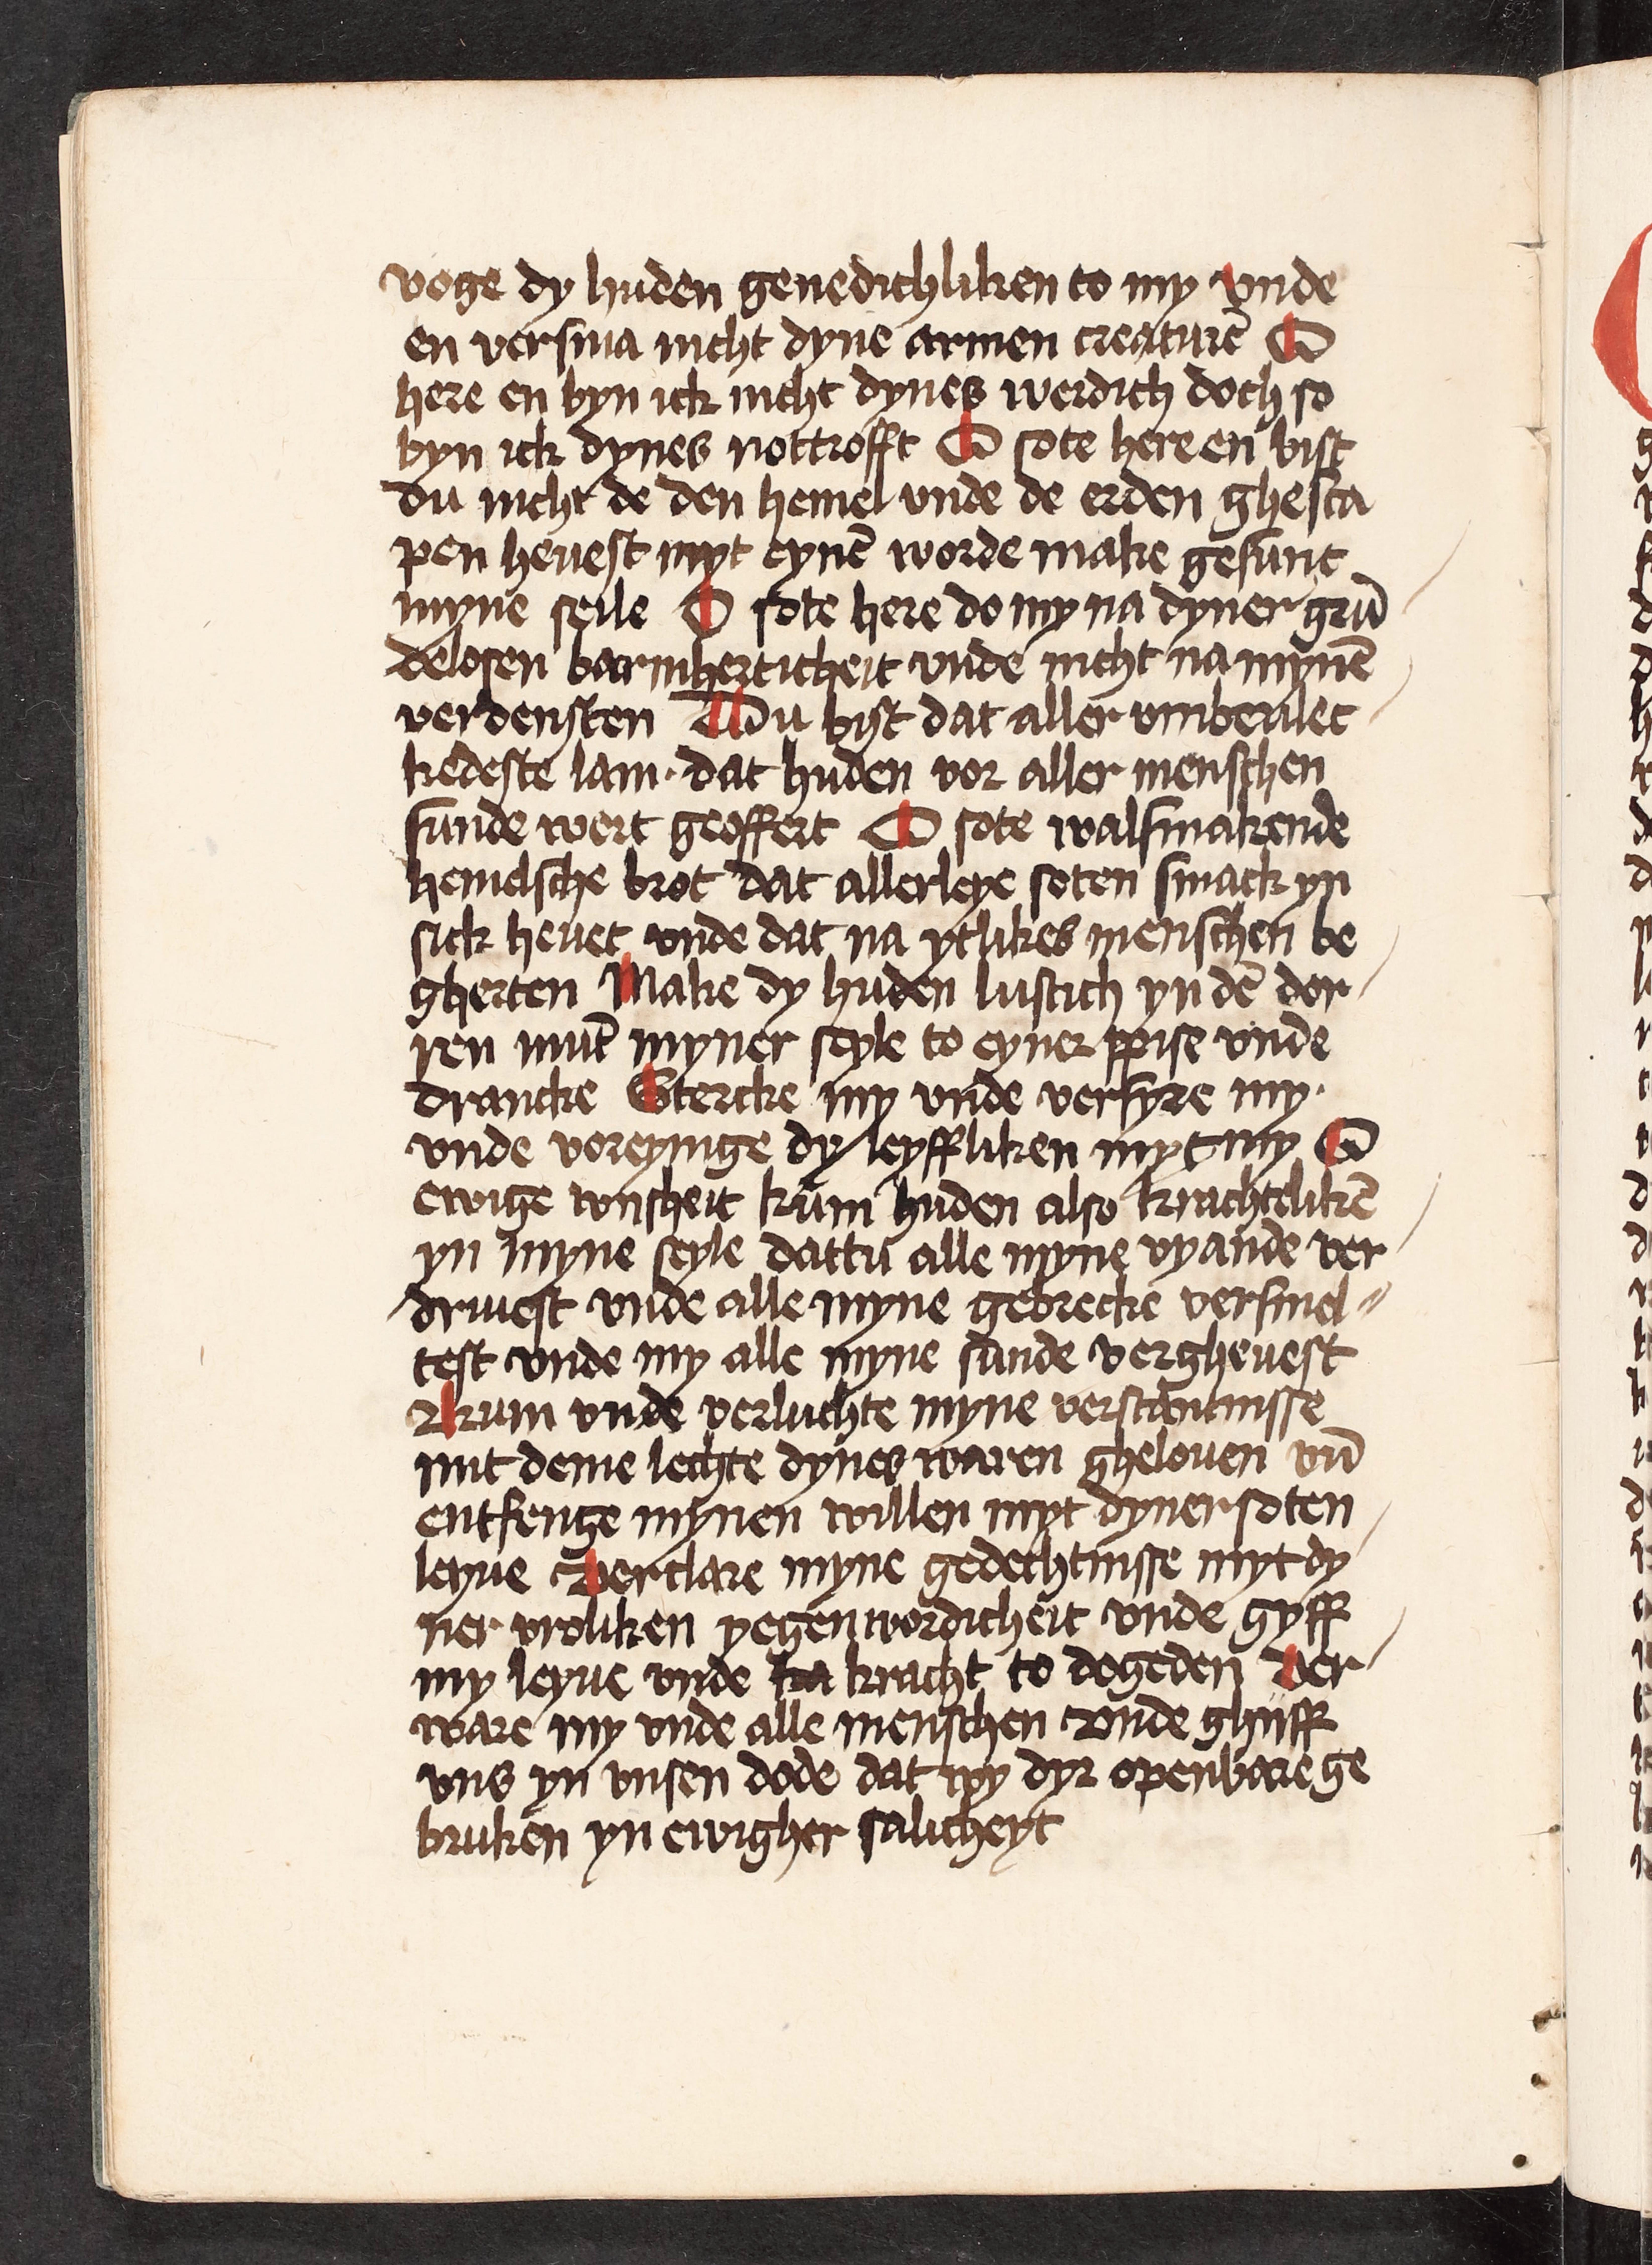 voge dy huden genedichliken to my vnde
en versma nicht dyne armen creaturē O
here en byn ick nicht dynes werdich doch so
byn ick dynes nottrofft O sote here en bist
du nicht de den hemel vnde de erden ghesca
pen heuest myt eynē worde make gesunt
myne seile O sote here do my na dyner grū
delosen barmherticheit vnde nicht na mynē
verdensten Du byst dat aller vmbeulec
kedeste lam · dat huden vor aller menschen
sunde wert geoffert O sote walsmakende
hemelsche brot dat allerleye soten smack yn
sick heuet vnde dat na ytlikes menschen be
gherten Make dy huden lustich yn dē dor
ren mūt myner seyle to eyner spise vnde
drancke Stercke my vnde versyre my ·
vnde voreynige dy leyffliken myt my O
ewige wisheit kum huden also krachtelikē
yn myne seyle dattu alle myne vyande ver
driuest vnde alle myne gebrecke versmel
test vnde my alle myne sunde vergheuest
Kum vnde verluchte myne verstantnisse
mit deme lechte dynes waren ghelouen vn̄
entfenge mynen willen myt dyner soten
leyue Verclare myne gedechtnisse myt dy
ner vroliken yegenwordicheit vnde gyff
my leyue vnde ka kracht to dogeden Ver
ware my vnde alle menschen Vnde ghiff
vns yn vnsen dode dat wy dyr openbare ge
bruken yn ewigher salicheyt